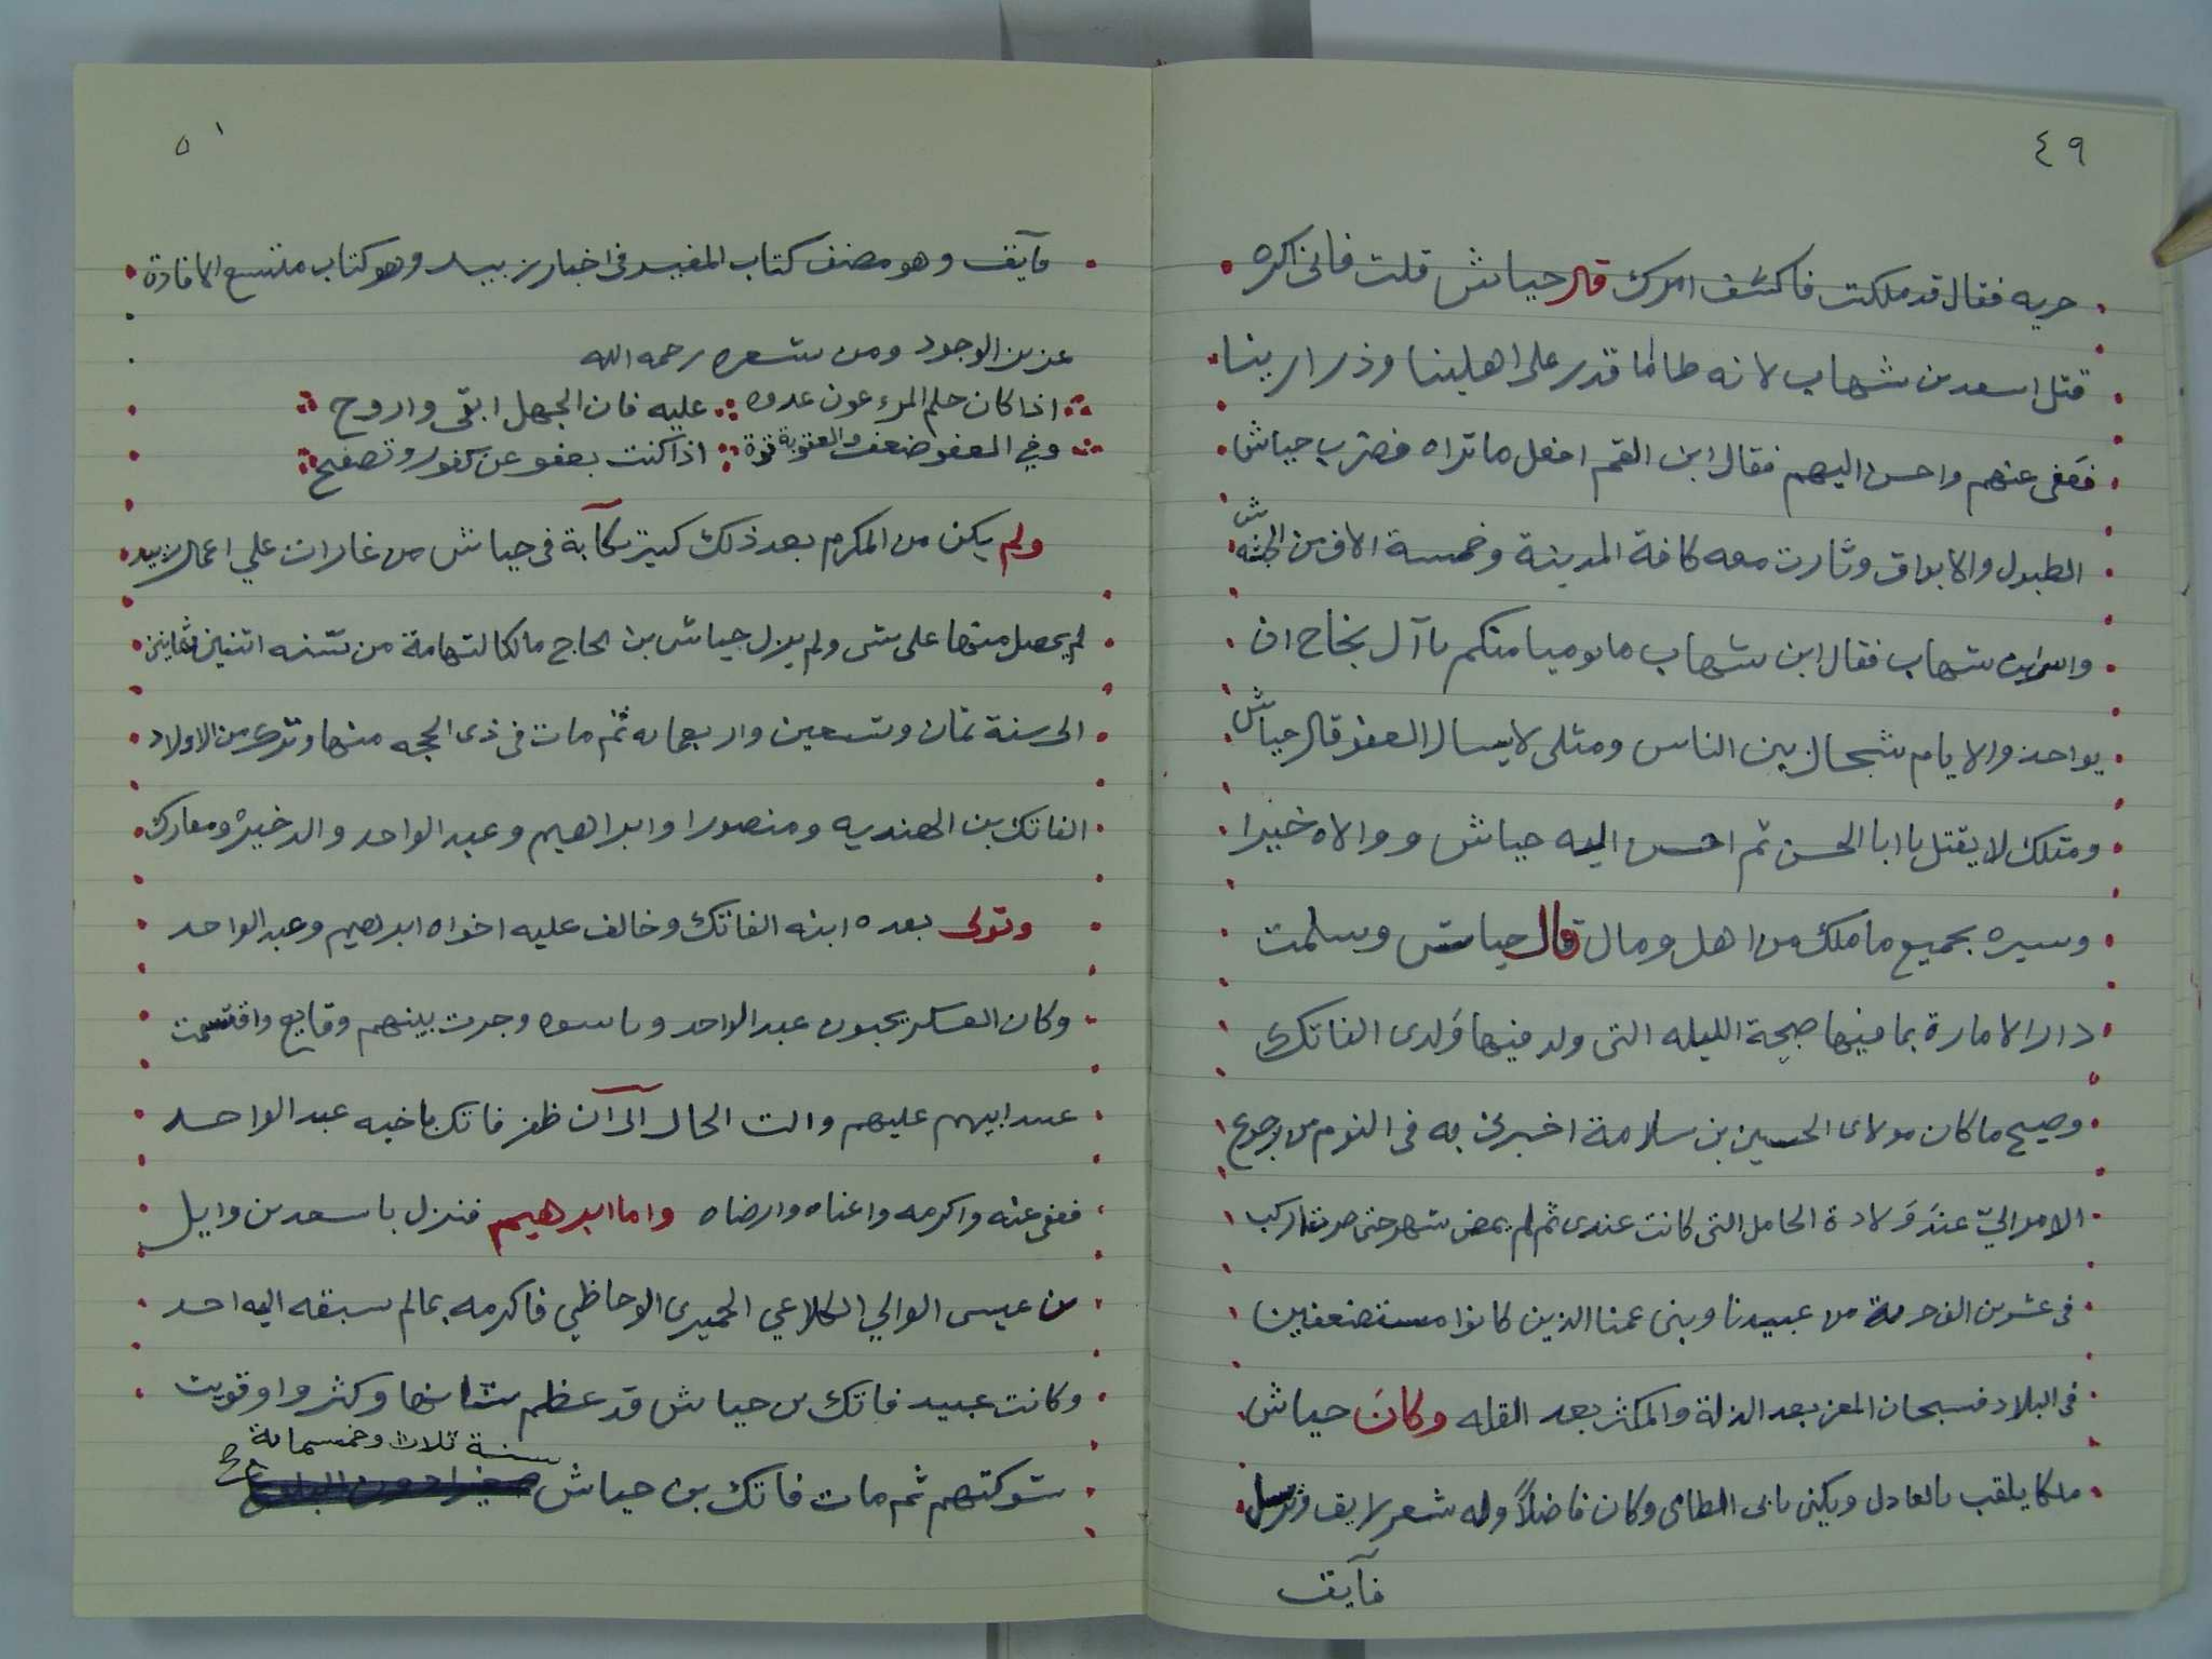 ٤٩
حربه فقال قد ملكت فاكشف امرك قال جياش قلت فانى اكره
قتل اسعد بن شهاب لانه طالما قدر على اهلينا وذرارينا
فعفى عنهم واحسن اليهم فقال ابن القم افعل ما تراه فضرب جياش
الطبول والابواق وثارت معه كافة المدينة وخمسة الاف من الحبشه
واسر ابن شهاب فقال ابن شهاب ما يومنا منكم يا آل نجاح ان
بواحد والايام سجال بين الناس ومثلى لا يسال العفو قال جياش
ومثلك لا يقتل يا ابا الحسن ثم احسن اليه جياش ووالاه خيرا
وسيره بجميع ما ملك من اهل ومال قال جياش وسلمت
دار الامارة بما فيها صبيحة الليله التى ولد فيها وَلدى الفاتك
وصح ما كان مولاى الحسين بن سلامة اخبرنى به فى النوم من رجوع
الامر اليّ عند وَلادة الحامل التى كانت عندى ثم لم يمض شهر حتى صرت اركب
فى عشرين الف حربة من عبيدنا وبنى عمنا الذين كانوا مستضعفين
فى البلاد فسبحان المعز بعد الذلة والمكثر بعد القله وكان جياش
ملكا يلقب بالعادل ويكنى بابى الطامى وكان فاضلاً وله شعر لايق وترسل
فآيق
٥١
فآيق وهو مصنف كتاب المفيد فى اخبار زبيد وهو كتاب متسع الافادة
عزيز الوجود ومن شعره رحمه الله
اذا كان حلم المرء عون عدوه عليه فان الجهل ابقى واروح
وفي العفو ضعف والعقوبة قوة اذا كنت بعفو عن كفور وتصفح
ولم يكن من المكرم بعد ذلك كبير نكآبة فى جياش من غارات علي اعمال زبيد
لم يحصل منها على شى ولم يزل جياش بن نجاح مالكا لتهامة من سنه اثنين وثمانين
الى سنة ثمان وتسعين واربعمايه ثم مات فى ذى الحجه منها وترك من الاولاد
الفاتك بن الهنديه ومنصورا وابراهيم وعبد الواحد والدخيرة ومعارك
وتولى بعده ابنه الفاتك وخالف عليه اخواه ابرهيم وعبد الواحد
وكان العسكر يحبون عبد الواحد ويانسوه وجرت بينهم وقايع واقتسمت
عبيد ابيهم عليهم والت الحال آلى آن ظفر فاتك باخيه عبد الواحد
فعفى عنه واكرمه واغناه وارضاه واما ابرهيم فنزل باسعد بن وايل
بن عيسى الوالي الكلاعي الحميرى الوحاظي فاكرمه بما لم يسبقه اليه احد
وكانت عبيد فاتك بن جياش قد عظم شانها وكثروا وقويت
شوكتهم ثم مات فاتك بن جياش سنة ثلاث وخمسماية